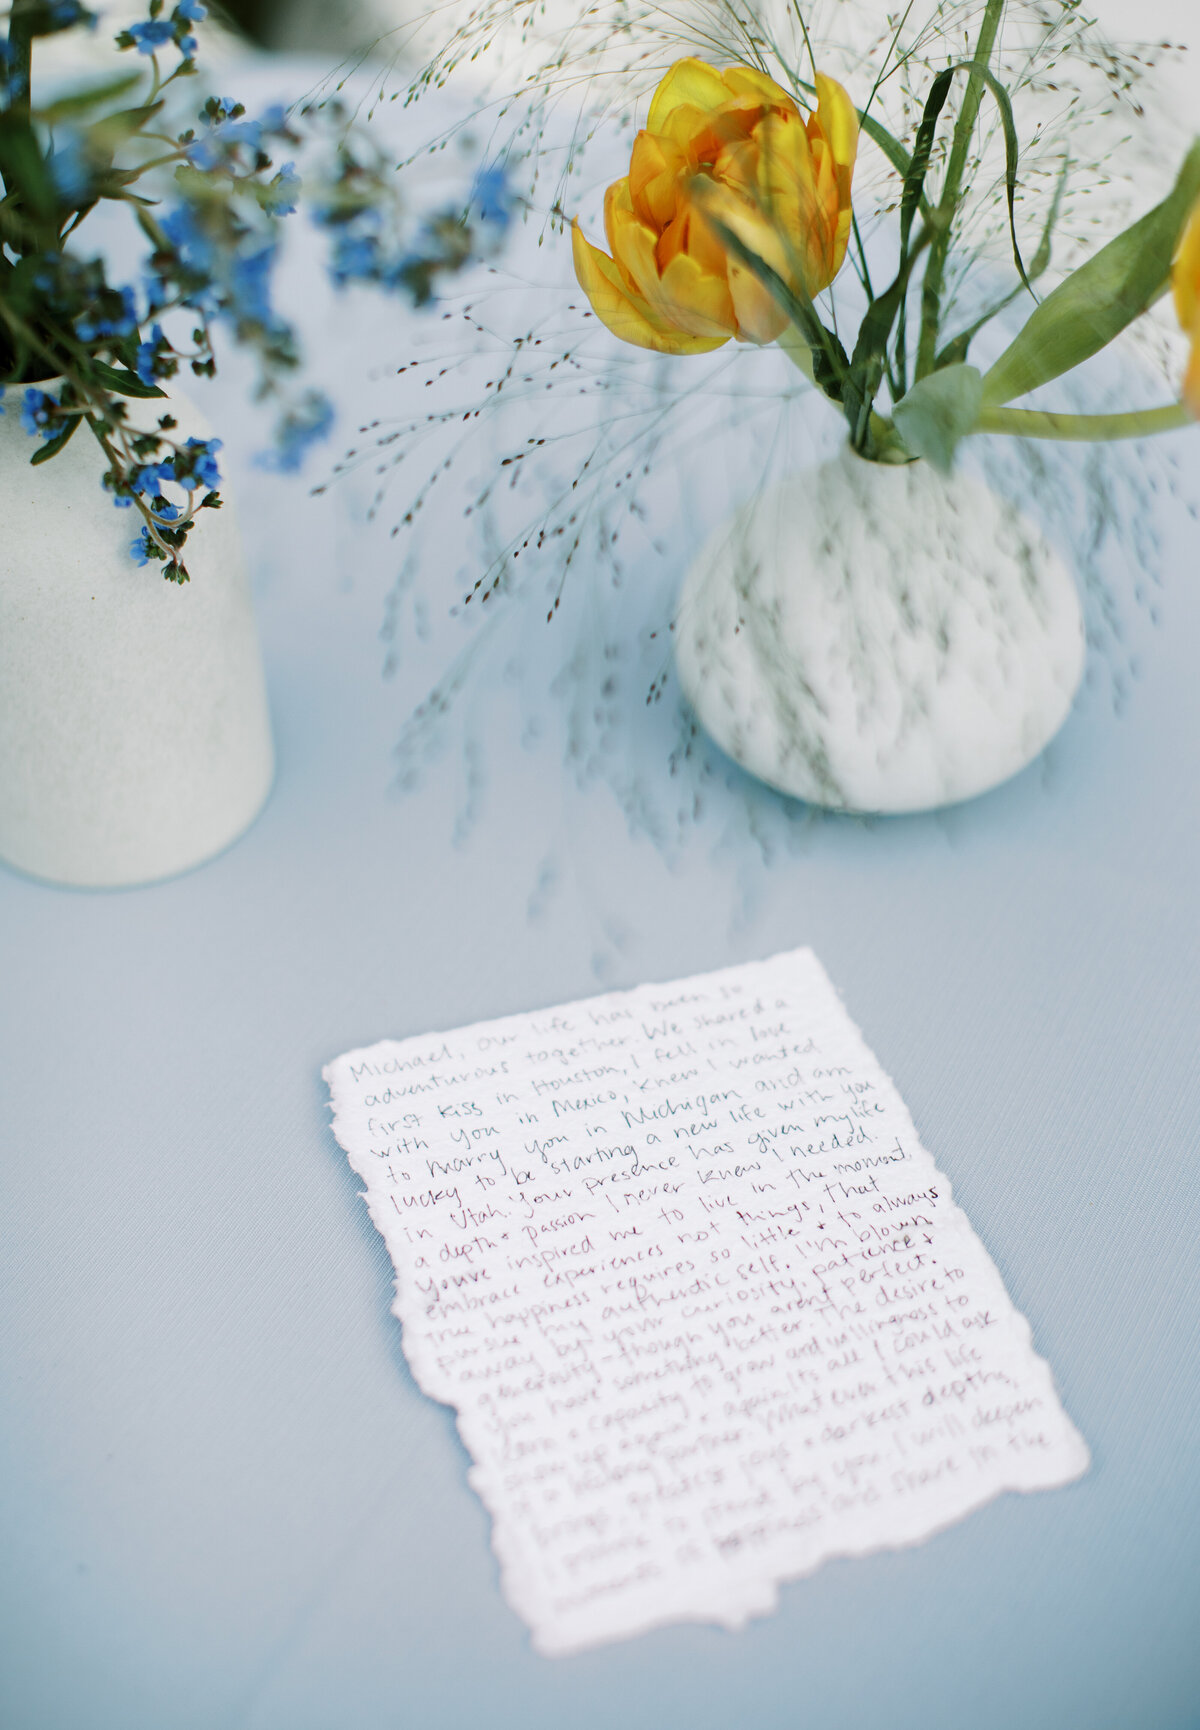 Michael, our life has been so
adventurous together. We shared a
first kiss in Houston, I fell in love
with you in Mexico, knew I wanted
to marry you in Michigan and am
lucky to be starting a new life with you
in Utah. Your presence has given my life
a depth + passion I never knew I needed.
You've inspired me to live in the moment,
embrace experiences not things, that
true happiness requires so little + to always
pursue my authentic self. I'm blown
away by your curiosity, patience +
generosity - though you arent perfect.
you have something better. The desire to
learn + capacity to grow and willingness to
show up again + again its all I could ask
of a partner. Whatever this life
brings, greatest joys + darkest depths,
I promise to stand by you. I will deepen
moments of happiness and share in the